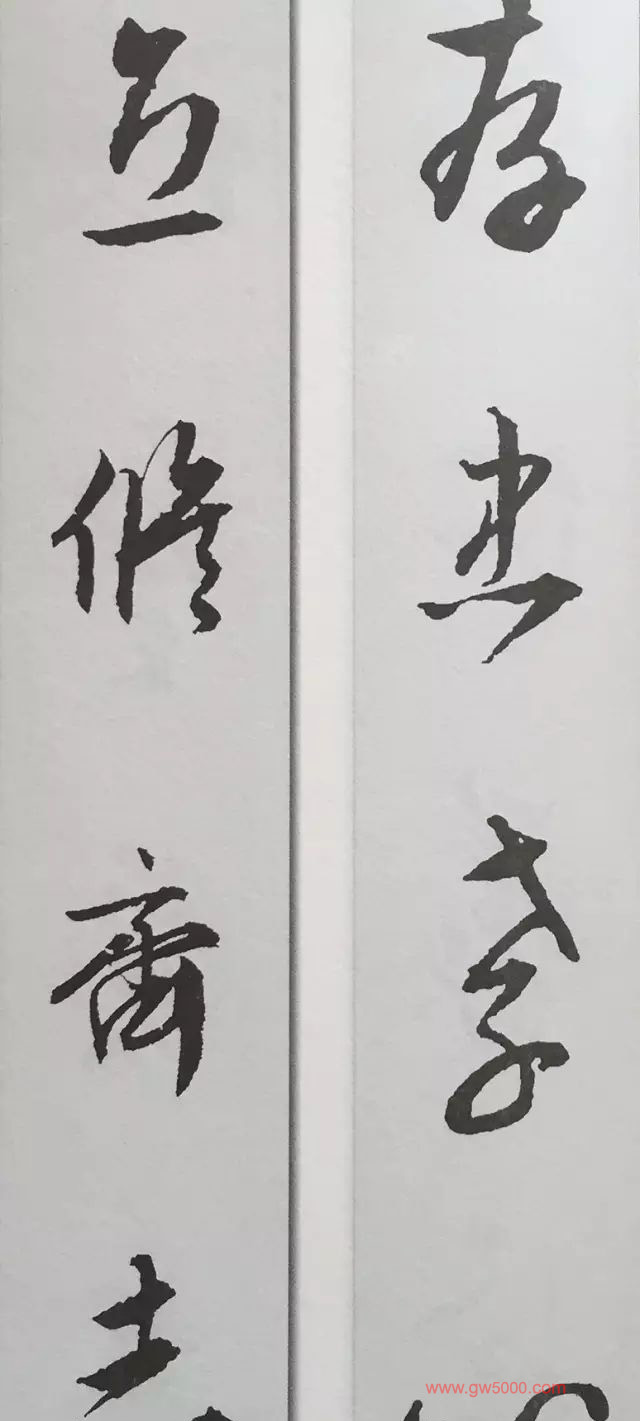 存忠孝
立修齊志
www.gw5000.com